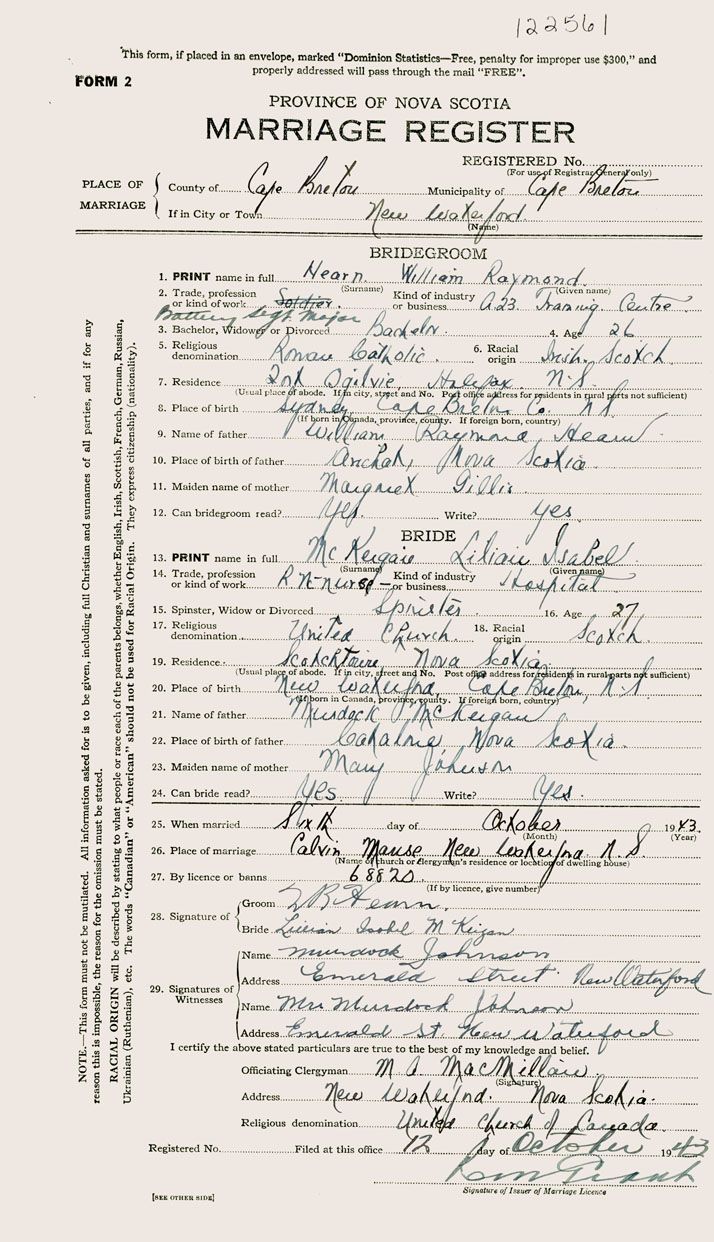 122561
This form, if placed in an envelope, marked "Dominion Statistics—Free, penalty for improper use $300," and
properly addressed will pass through the mail "FREE".
FORM 2
PROVINCE OF NOVA SCOTIA
MARRIAGE REGISTER
REGISTERED No.
(For use of Registrar General only)
PLACE OF MARRIAGE
County of Cape Breton Municipality of Cape Breton
If in City or Town New Waterford
(Name)
BRIDEGROOM
1. PRINT name in full Hearn William Raymond
(Surname) (Given name)
2. Trade, profession or kind of work Soldier Kind of industry or business A23 Traning Centre
Battery Sgt. Major
3. Bachelor, Widower or Divorced Bachelor 4. Age 26
5. Religious denomination Roman Catholic. 6. Racial origin Irish. Scotch
7. Residence Ogilvie, Halifax N.S.
(Usual place of abode. If in city, street and No. Post office address for residents in rural parts not sufficient)
8. Place of birth Sydney, Cape Breton Co. N.S.
(If born in Canada, province, county. If foreign born, country)
9. Name of father William Raymond, Hearn
10. Place of birth of father Arichat, Nova Scotia
11. Maiden name of mother Margret Gillis
12. Can bridegroom read? Yes. Write? Yes.
BRIDE
13. PRINT name in full McKeigan Lilian Isabel
(Surname) (Given name)
14. Trade, profession or kind of work R N-nurse Kind of industry or business Hospital
15. Spinster, Widow or Divorced Spinster 16. Age 27
17. Religious denomination United Church. 18. Racial origin Scotch.
19. Residence Nova Scotia
(Usual place of abode. If in city, street and No. Post office address for residents in rural parts not sufficient)
20. Place of birth New Waterford, Cape Breton, N.S.
(If born in Canada, province, county. If foreign born, country)
21. Name of father Murdock McKeigan
22. Place of birth of father Catalone, Nova Scotia.
23. Maiden name of mother Mary Johnson
24. Can bride read? Yes Write? Yes.
25. When married Sixth day of October 1943
(Month) (Year)
26. Place of marriage Calvin Manse New Waterford N.S.
(Name of church or clergyman's residence or location of dwelling house)
27. By licence or banns 68820
(If by licence, give number)
28. Signature of
Groom Hearn.
Bride Lilian Isobel McKeigan
29. Signatures of Witnesses
Name Murdock Johnson
Address Emerald Street New Waterford
Name Mrs Murdock Johnson
Address Emerald St. New Waterford
I certify the above stated particulars are true to the best of my knowledge and belief.
Officiating Clergyman M A MacMillan
(Signature)
Address New Waterford. Nova Scotia.
Religious denomination United Church of Canada.
Registered No. Filed at this office 12 day of October 1943
Grant
Signature of Issuer of Marriage Licence
[SEE OTHER SIDE]
NOTE.—This form must not be mutilated. All information asked for is to be given, including full Christian and surnames of all parties, and if for any
reason this is impossible, the reason for the omission must be stated.
RACIAL ORIGIN will be described by stating to what people or race each of the parents belongs, whether English, Irish, Scottish, French, German, Russian,
Ukrainian (Ruthenian), etc. The words "Canadian" or "American" should not be used for Racial Origin. They express citizenship (nationality).